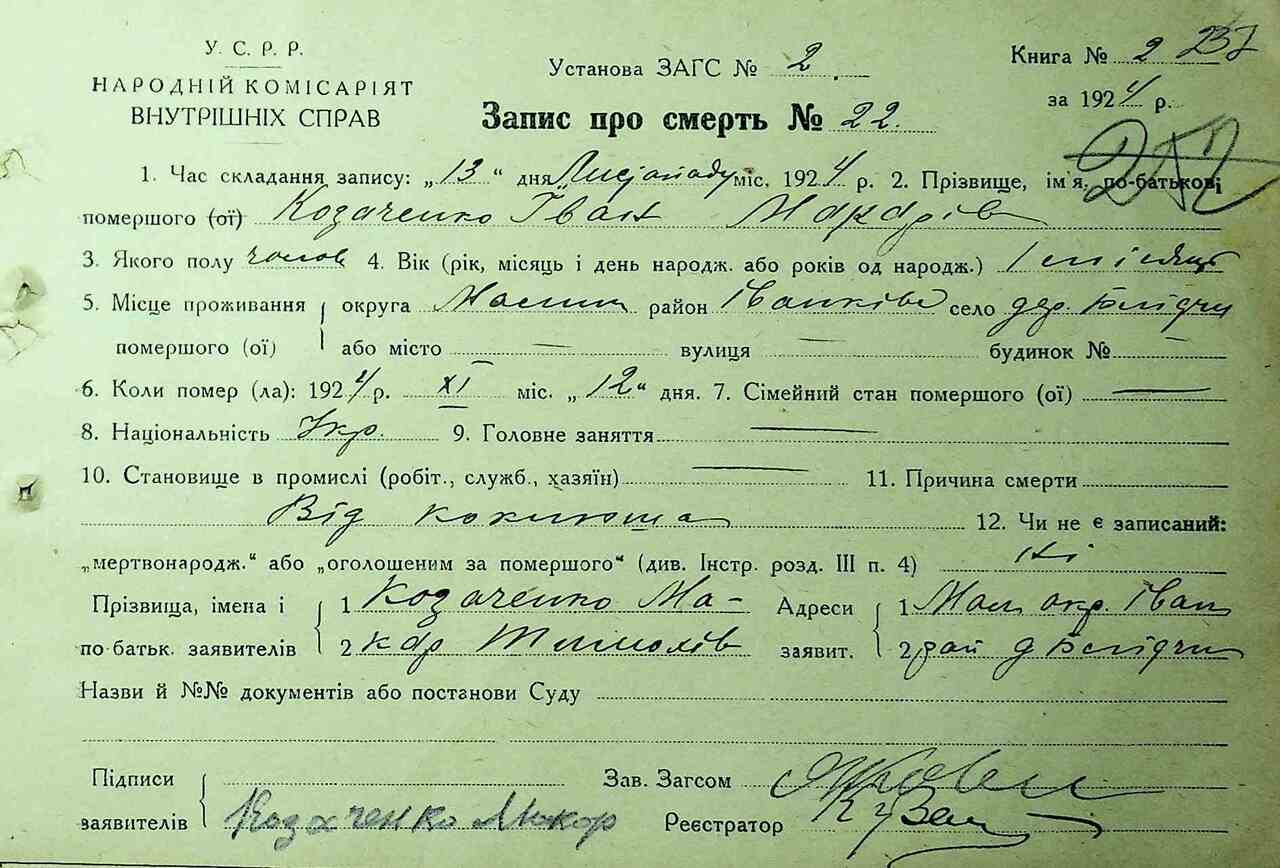 У. С. Р. Р.
НАРОДНІЙ КОМІСАРІЯТ
ВНУТРІШНІХ СПРАВ
Установа ЗАГС № 2.
Запис про смерть № 22.
Книга № 2 237
за 1924 р.
1. Час складання запису: „13“ дня „Листопаду міс. 1924 р. 2. Прізвище, ім'я, по-батькові
помершого (ої) Козаченко Іван Макарів
3. Якого полу чолов 4. Вік (рік, місяць і день народж. або років од народж.) 1 місяць
5. Місце проживання округа Малин район Іванківс село дер.
помершого (ої) або місто — вулиця — будинок № —
6. Коли помер (ла): 1924 р. XI міс. „12“ дня. 7. Сімейний стан помершого (ої) —
8. Національність Укр. 9. Головне заняття —
10. Становище в промислі (робіт., служб., хазяїн) — 11. Причина смерти
Від коклюша 12. Чи не є записаний:
„мертвонародж.“ або „оголошеним за помершого“ (див. Інстр. розд. III п. 4) Ні
Прізвища, імена і 1 Козаченко Ма- Адреси 1 Мал окр. Іван
по батьк. заявителів 2 кар заявит. 2 рай д
Назви й №№ документів або постанови Суду
Підписи Зав. Загсом
заявителів Козаченко Макар Реєстратор